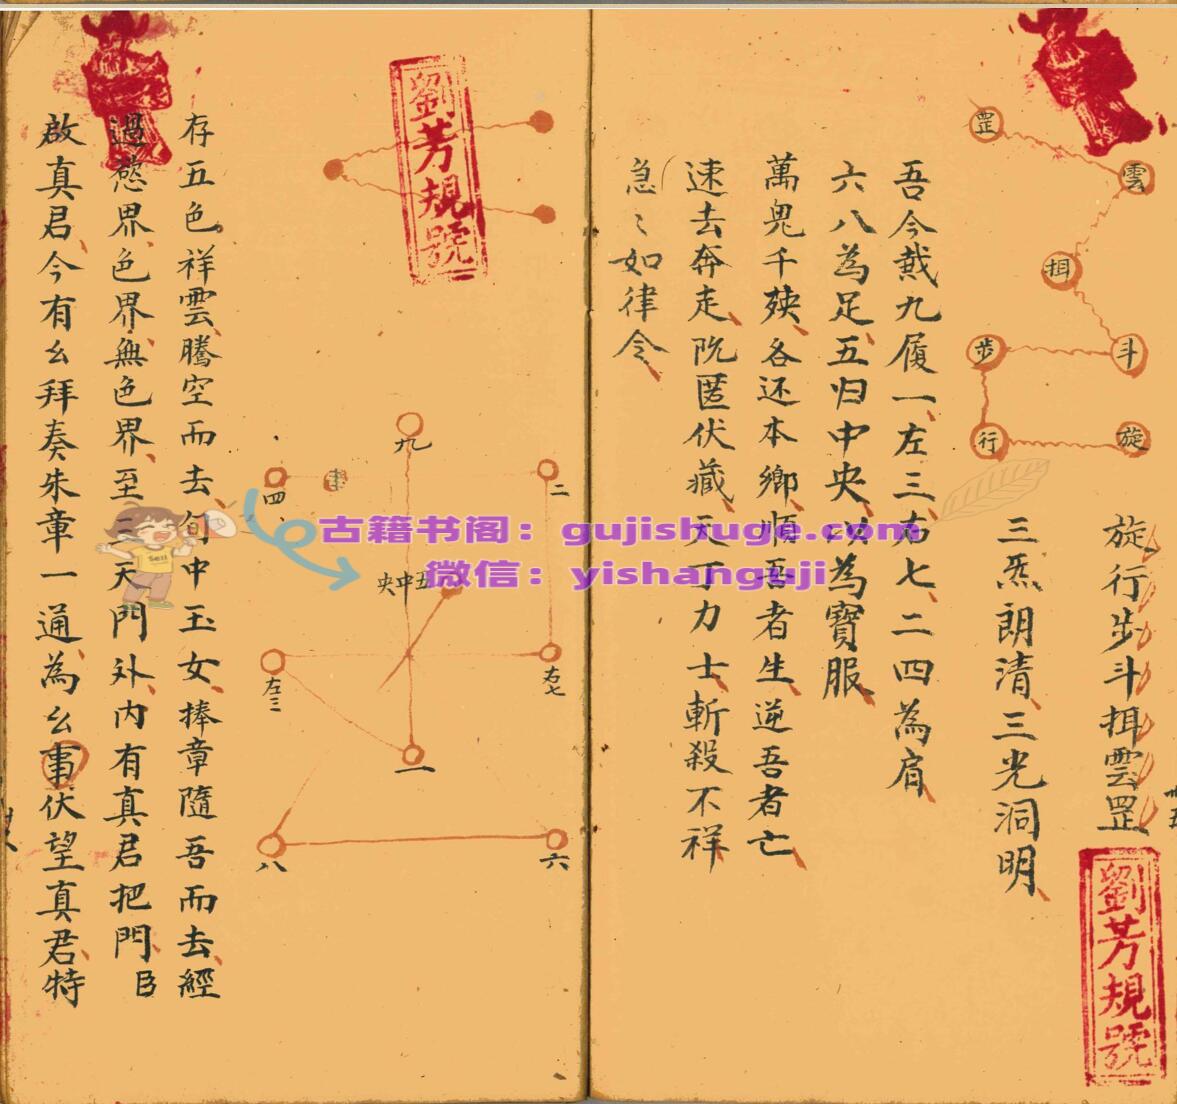 罡
雲
揖
斗
步
行
旋
旋行步斗揖雲罡
劉芳規號
三炁朗清、三光洞明、
吾今戴九履一、左三、右七、二四為肩、
六八為足、五归中央、以為寶服、
萬鬼千殃、各还本鄉、順吾者生、逆吾者亡、
速去奔走、阮匿伏藏、天丁力士、斬殺不祥
急〻如律令、
劉芳規號
九
二
四、
五中央
左三
右七
一
八
六
存五色祥雲、騰空而去旬中玉女、捧章隨吾而去、經
過慾界、色界、無色界、至三天門外、内有真君把門、臣
啟真君、今有厶拜奏朱章一通、為厶事伏望真君、特
古籍书阁：gujishuge.com
微信：yishanguji